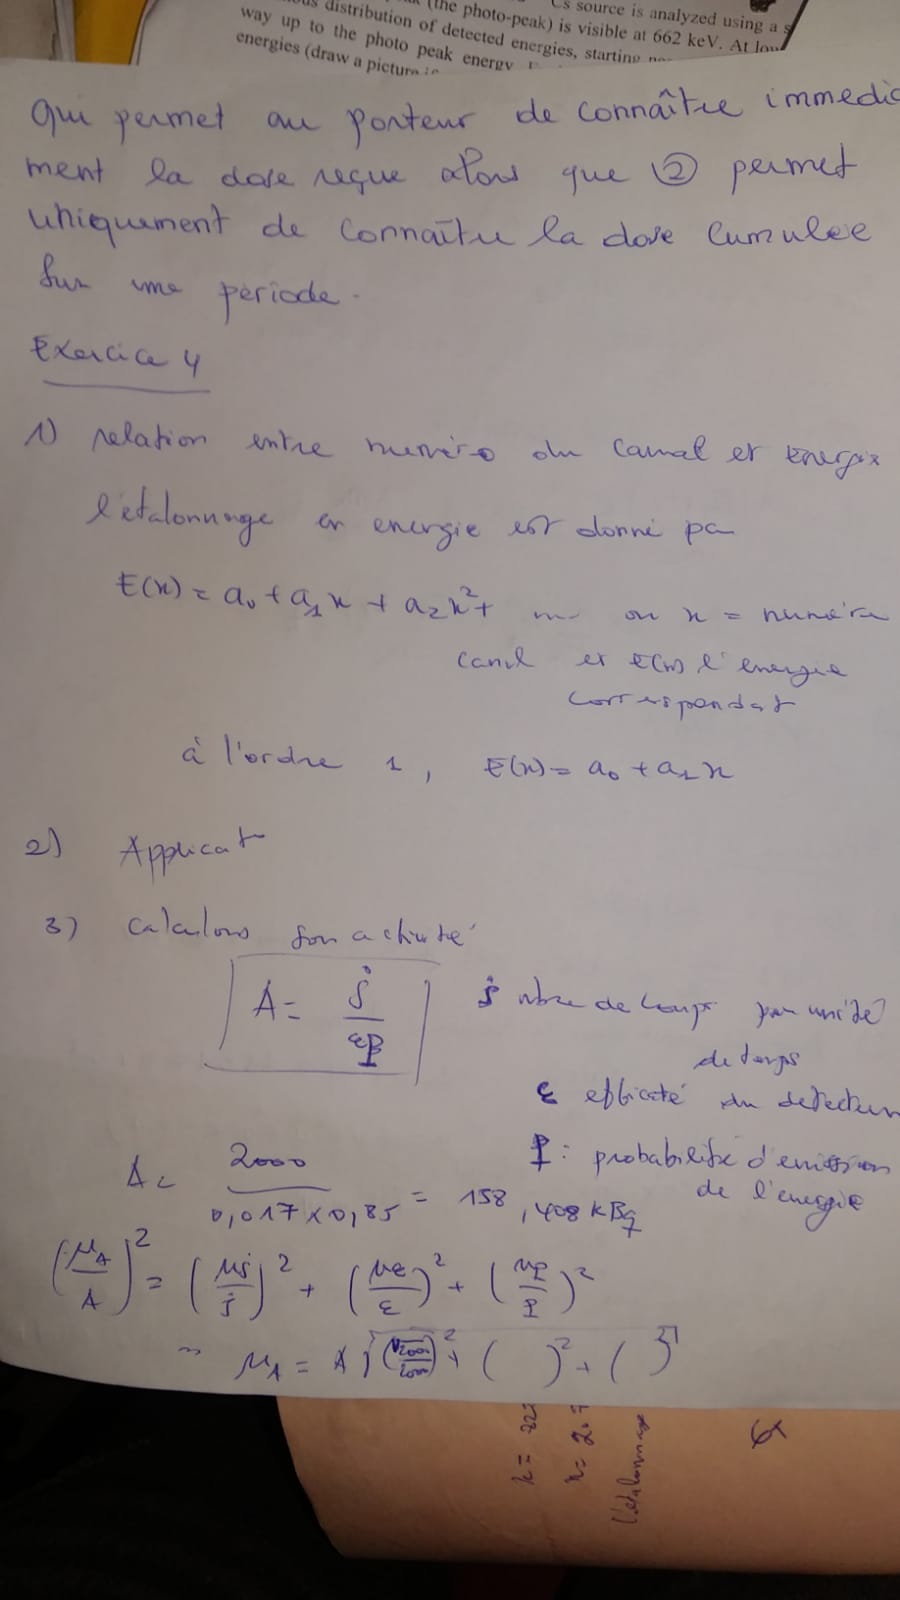 (the photo-peak) is visible at 662 keV. At low
Cs source is analyzed using a s
distribution of detected energies, starting
way up to the photo peak energy.
energies (draw a picture
Qui permet au porteur de connaître immédia
ment la dose reçue alors que ② permet
uniquement de connaître la dose cumulee
Sur une période.
Exercice 4
1) relation entre numéro du canal et Energie
l'étalonnage en energie est donné pa
E(x) = a₀ + a₁x + a₂x² + ... ou x = numéro
canal et E(x) l'énergie
correspondat
à l'ordre 1, E(x) = a₀ + a₁x
2) Applicat
3) Calculons son activité
A = ṡ / εP
ṡ nbre de coups par unité
de temps
ε efficacité du detecteur
P : probabilité d'emission
de l'energie
A = 2000 / 0,017 x 0,85 = 158,408 kBq
(μA/A)² = (μṡ/ṡ)² + (με/ε)² + (μP/P)²
~ μA = A √(√2000/2000)² + ( )² + ( )²
x = 2.7
l'etalonnage